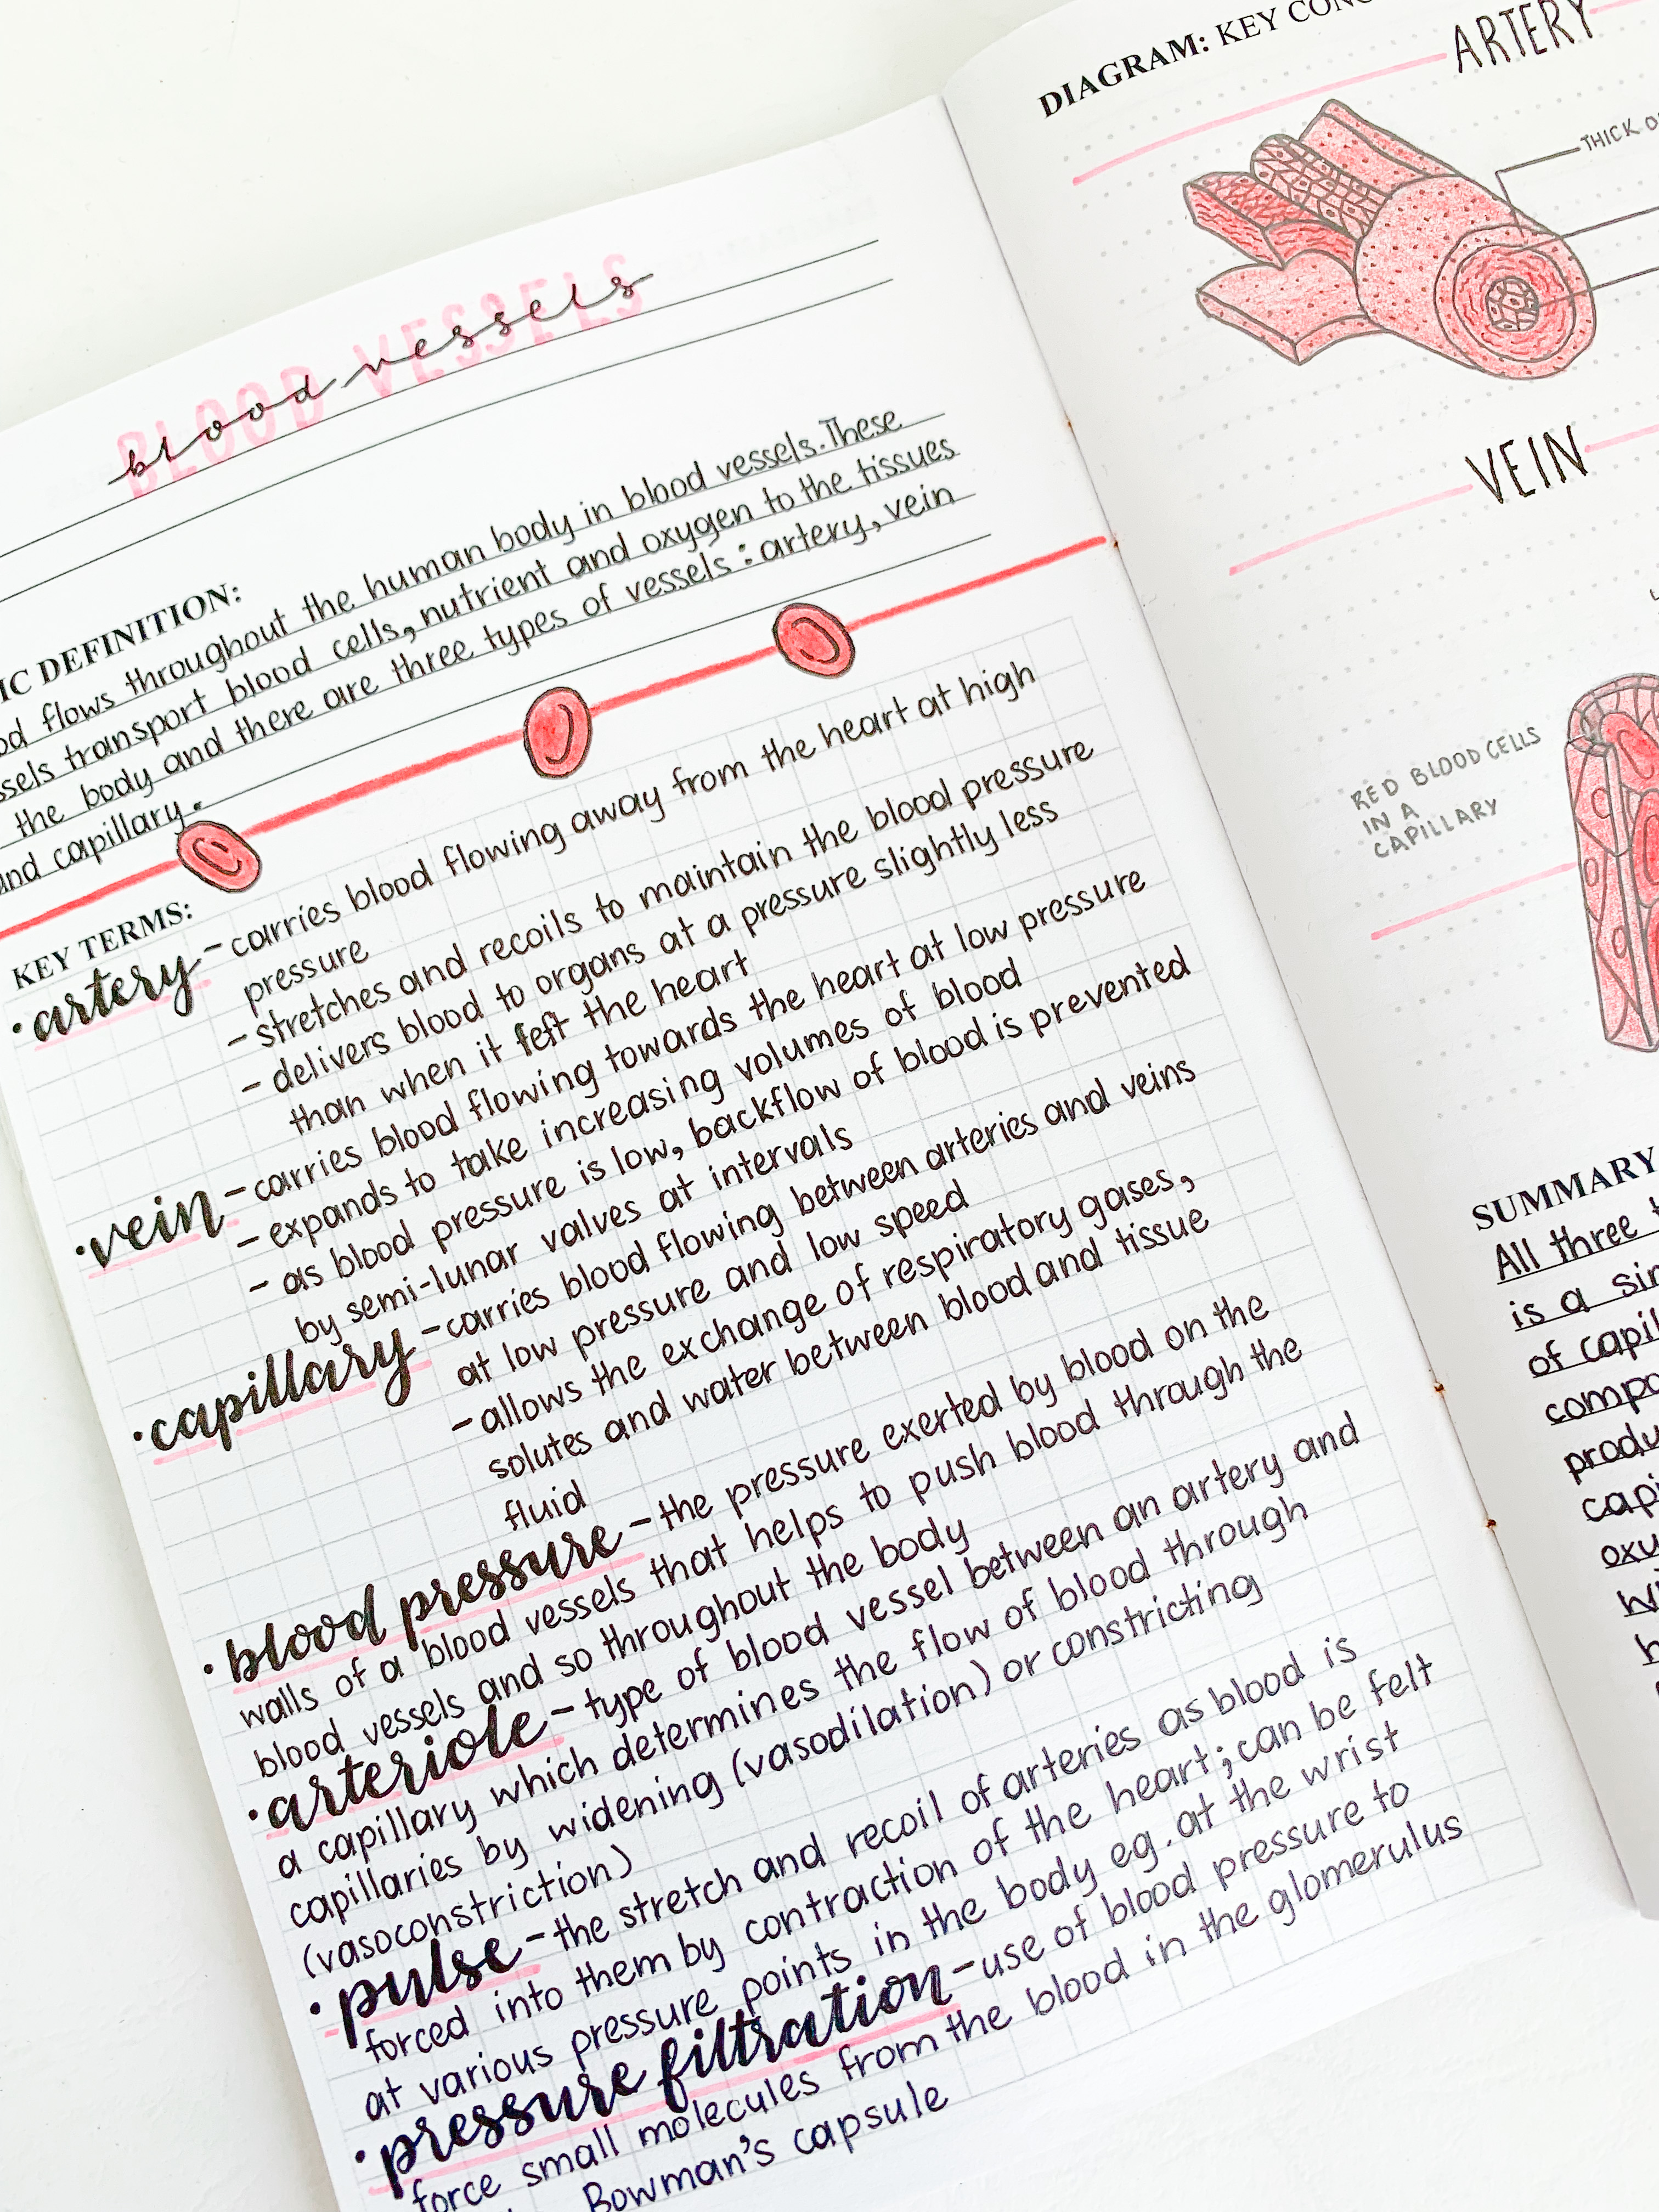 BLOOD VESSELS
blood vessels
DEFINITION:
flows throughout the human body in blood vessels. These
transport blood cells, nutrient and oxygen to the tissues
the body and there are three types of vessels: artery, vein
and capillary.
KEY TERMS:
• artery - carries blood flowing away from the heart at high
pressure
- stretches and recoils to maintain the blood pressure
- delivers blood to organs at a pressure slightly less
than when it left the heart
• vein - carries blood flowing towards the heart at low pressure
- expands to take increasing volumes of blood
- as blood pressure is low, backflow of blood is prevented
by semi-lunar valves at intervals
• capillary - carries blood flowing between arteries and veins
at low pressure and low speed
- allows the exchange of respiratory gases,
solutes and water between blood and tissue
fluid
• blood pressure - the pressure exerted by blood on the
walls of a blood vessels that helps to push blood through the
blood vessels and so throughout the body
• arteriole - type of blood vessel between an artery and
a capillary which determines the flow of blood through
capillaries by widening (vasodilation) or constricting
(vasoconstriction)
• pulse - the stretch and recoil of arteries as blood is
forced into them by contraction of the heart; can be felt
at various pressure points in the body eg. at the wrist
• pressure filtration - use of blood pressure to
force small molecules from the blood in the glomerulus
Bowman's capsule
DIAGRAM: KEY
ARTERY
THICK
VEIN
RED BLOOD CELLS
IN A
CAPILLARY
SUMMARY
All three
is a
of